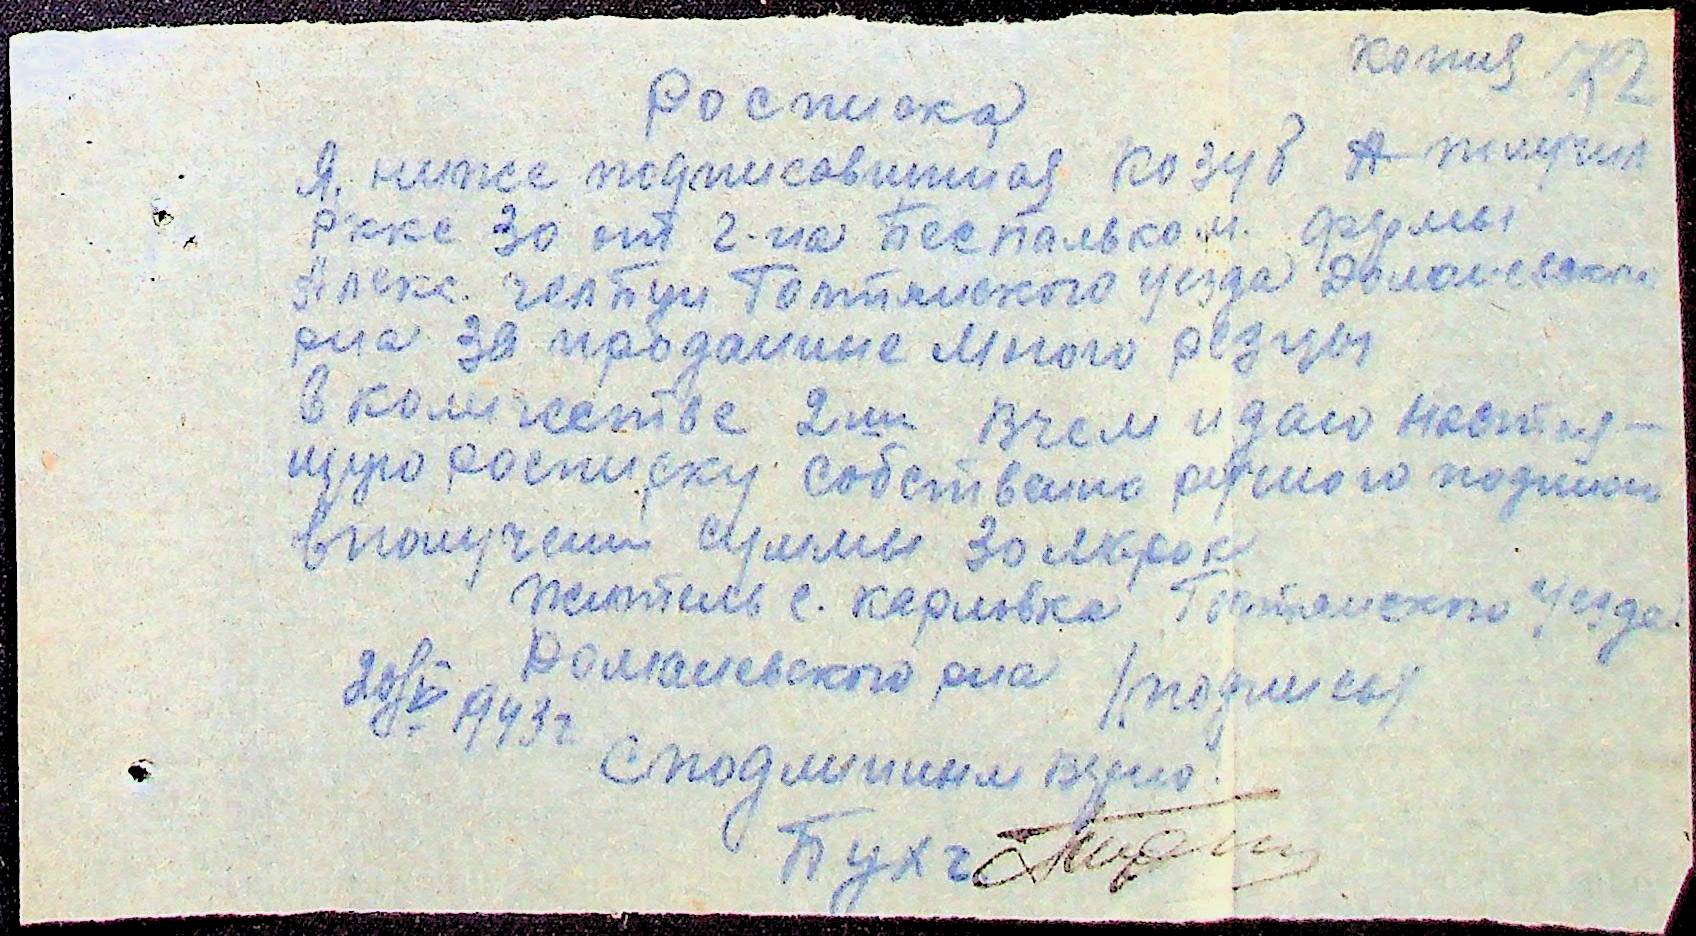 копия 72
Росписка
Я, ниже подписавшийся Козуб А получил
Рккс 30 от г-на Беспалько м. фермы
Алекс. Голтянского уезда Доманевского
рна за проданные мною резцы
в количестве 2 шт в чем и даю настоя-
щую росписку собственно ручного подписи
в получении суммы 30 мкрок
житель с. карловка Голтянского уезда
Доманевского рна /подпись/
20/V 1943г
С подлинным верно:
Бухг